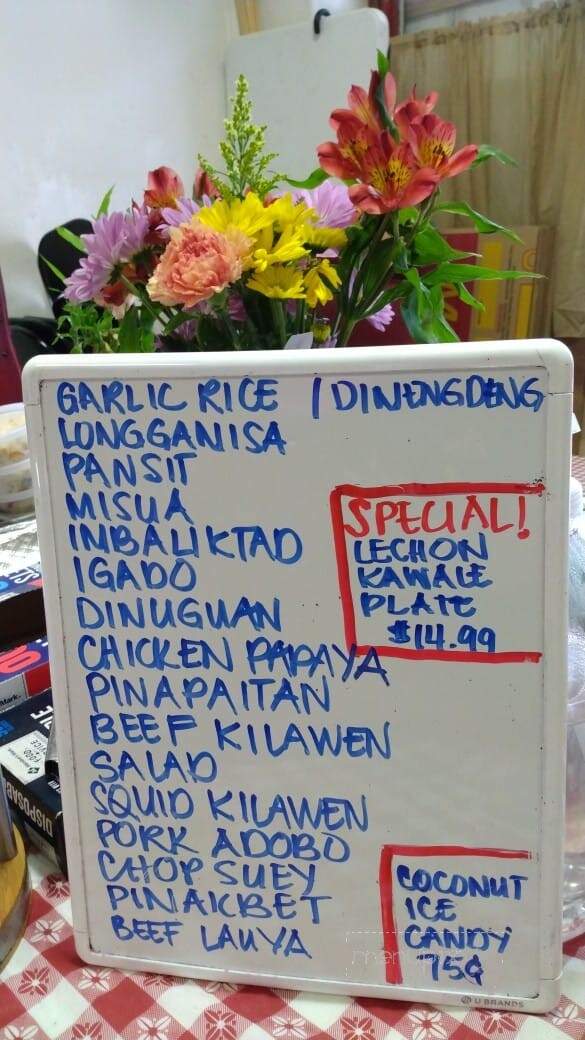 GARLIC RICE | DINENGDENG
LONGGANISA
PANSIT
MISUA
IMBALIKTAD
IGADO
DINUGUAN
CHICKEN PAPAYA
PINAPAITAN
BEEF KILAWEN
SALAD
SQUID KILAWEN
PORK ADOBO
CHOP SUEY
PINAKBET
BEEF LAUYA
SPECIAL!
LECHON
KAWALE
PLATE
$14.99
COCONUT
ICE
CANDY
75¢
U BRANDS